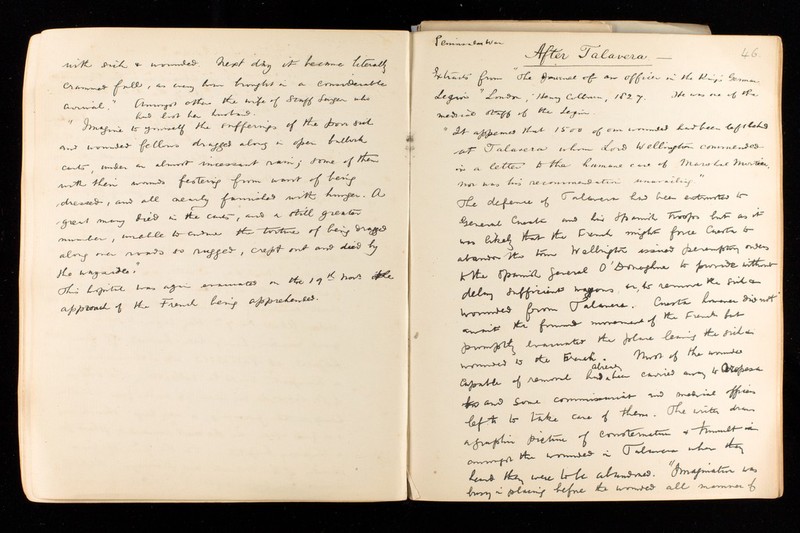 with sick & wounded. Next day it became literally
crammed full, as many were brought in a considerable
arrival." Amongst others the wife of Staff Surgeon who
had lost her husband.
"Imagine to yourself the sufferings of the poor sick
and wounded fellows dragged along in open bullock
carts, under an almost incessant rain; some of them
with their wounds festering from want of being
dressed, and all nearly famished with hunger. A
great many died in the carts, and a still greater
number, unable to endure the torture of being dragged
along over roads so rugged, crept out and died by
the wayside."
This hospital was again evacuated on the 19th Novr the
approach of the French being apprehended.
Peninsular War
46.
After Talavera —
Extracts from "The Journal of an officer in the King's German
Legion" London, Henry Colburn, 1827. He was one of the
medical staff of the Legion.
"It appeared that 1500 of our wounded had been left behind
at Talavera whom Lord Wellington commended
in a letter to the humane care of Marshal Mortier,
nor was his recommendation unavailing"
The defence of Talavera had been entrusted to
General Cuesta and his Spanish troops but as it
was likely that the French might force Cuesta to
abandon the town Wellington issued peremptory orders
to the Spanish General O'Donoghue to provide without
delay sufficient waggons to remove the sick &
wounded from Talavera. Cuesta however did not
await the forward movement of the French but
promptly evacuated the place leaving the sick &
wounded to the French. Most of the wounded
capable of removal had already been carried away to Oropesa
and some commissariat and medical officers
left to take care of them. The writer draws
a graphic picture of consternation & tumult
amongst the wounded in Talavera when they
heard they were to be abandoned. "Imagination was
busy in placing before the wounded all manner of